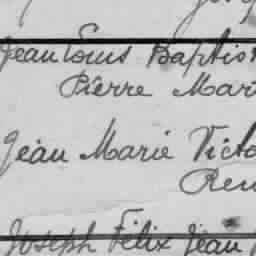 Jean Louis Baptis
Pierre Mar
Jean Marie Victo
Ren
Joseph Félix Jean